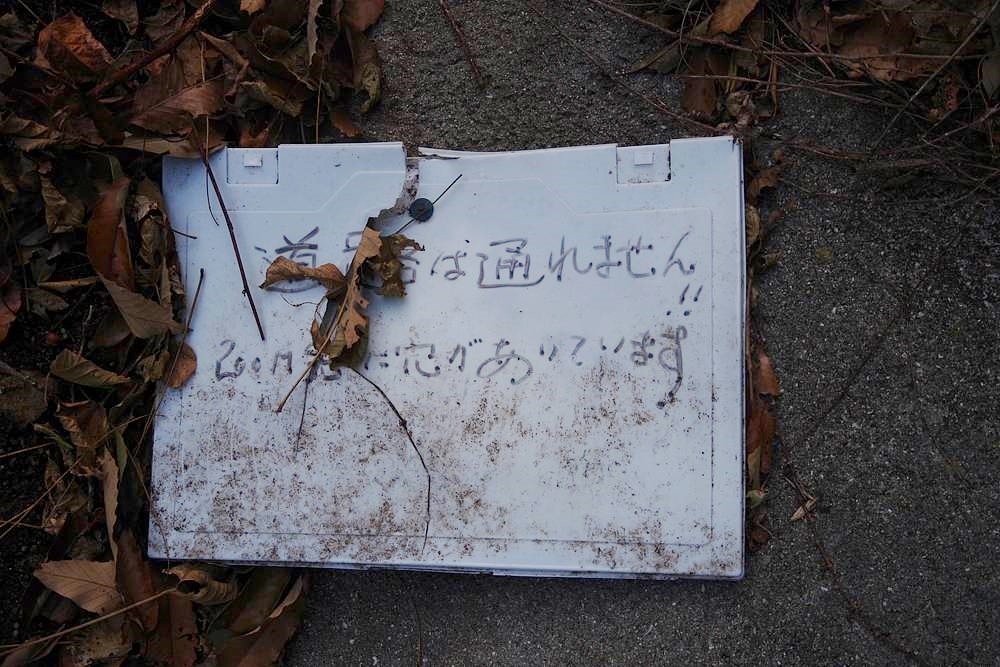 道路は通れません
!!
200M先に穴があいています!